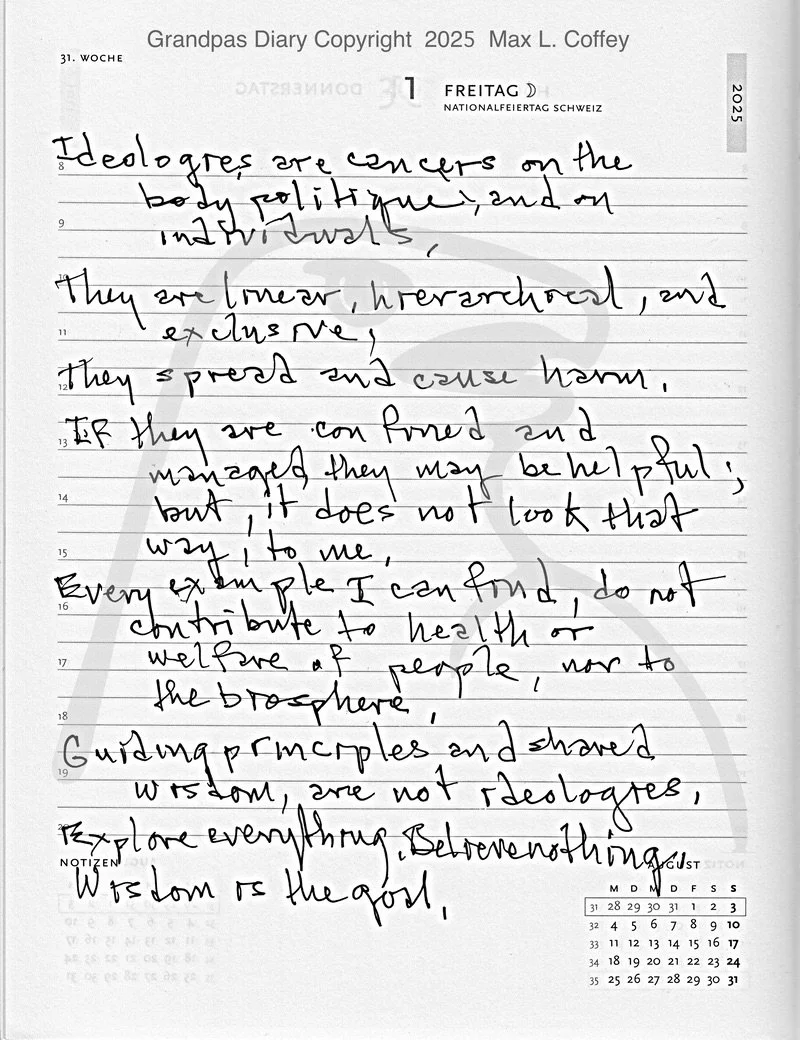 Grandpas Diary Copyright 2025 Max L. Coffey
31. WOCHE
1 FREITAG ☽
NATIONALFEIERTAG SCHWEIZ
2025
Ideologies are cancers on the
8
body politique, and on
9
individuals,
10
They are linear, hierarchical, and
11
exclusive;
12
They spread and cause harm.
13
If they are confined and
managed, they may be helpful;
14
but, it does not look that
15
way, to me,
Every example I can find, do not
16
contribute to health or
17
welfare of people, nor to
the biosphere,
18
Guiding principles and shared
19
wisdom, are not ideologies,
20
Explore everything. Believe nothing,
NOTIZEN
Wisdom is the goal,
AUGUST
M D M D F S S
31 28 29 30 31 1 2 3
32 4 5 6 7 8 9 10
33 11 12 13 14 15 16 17
34 18 19 20 21 22 23 24
35 25 26 27 28 29 30 31